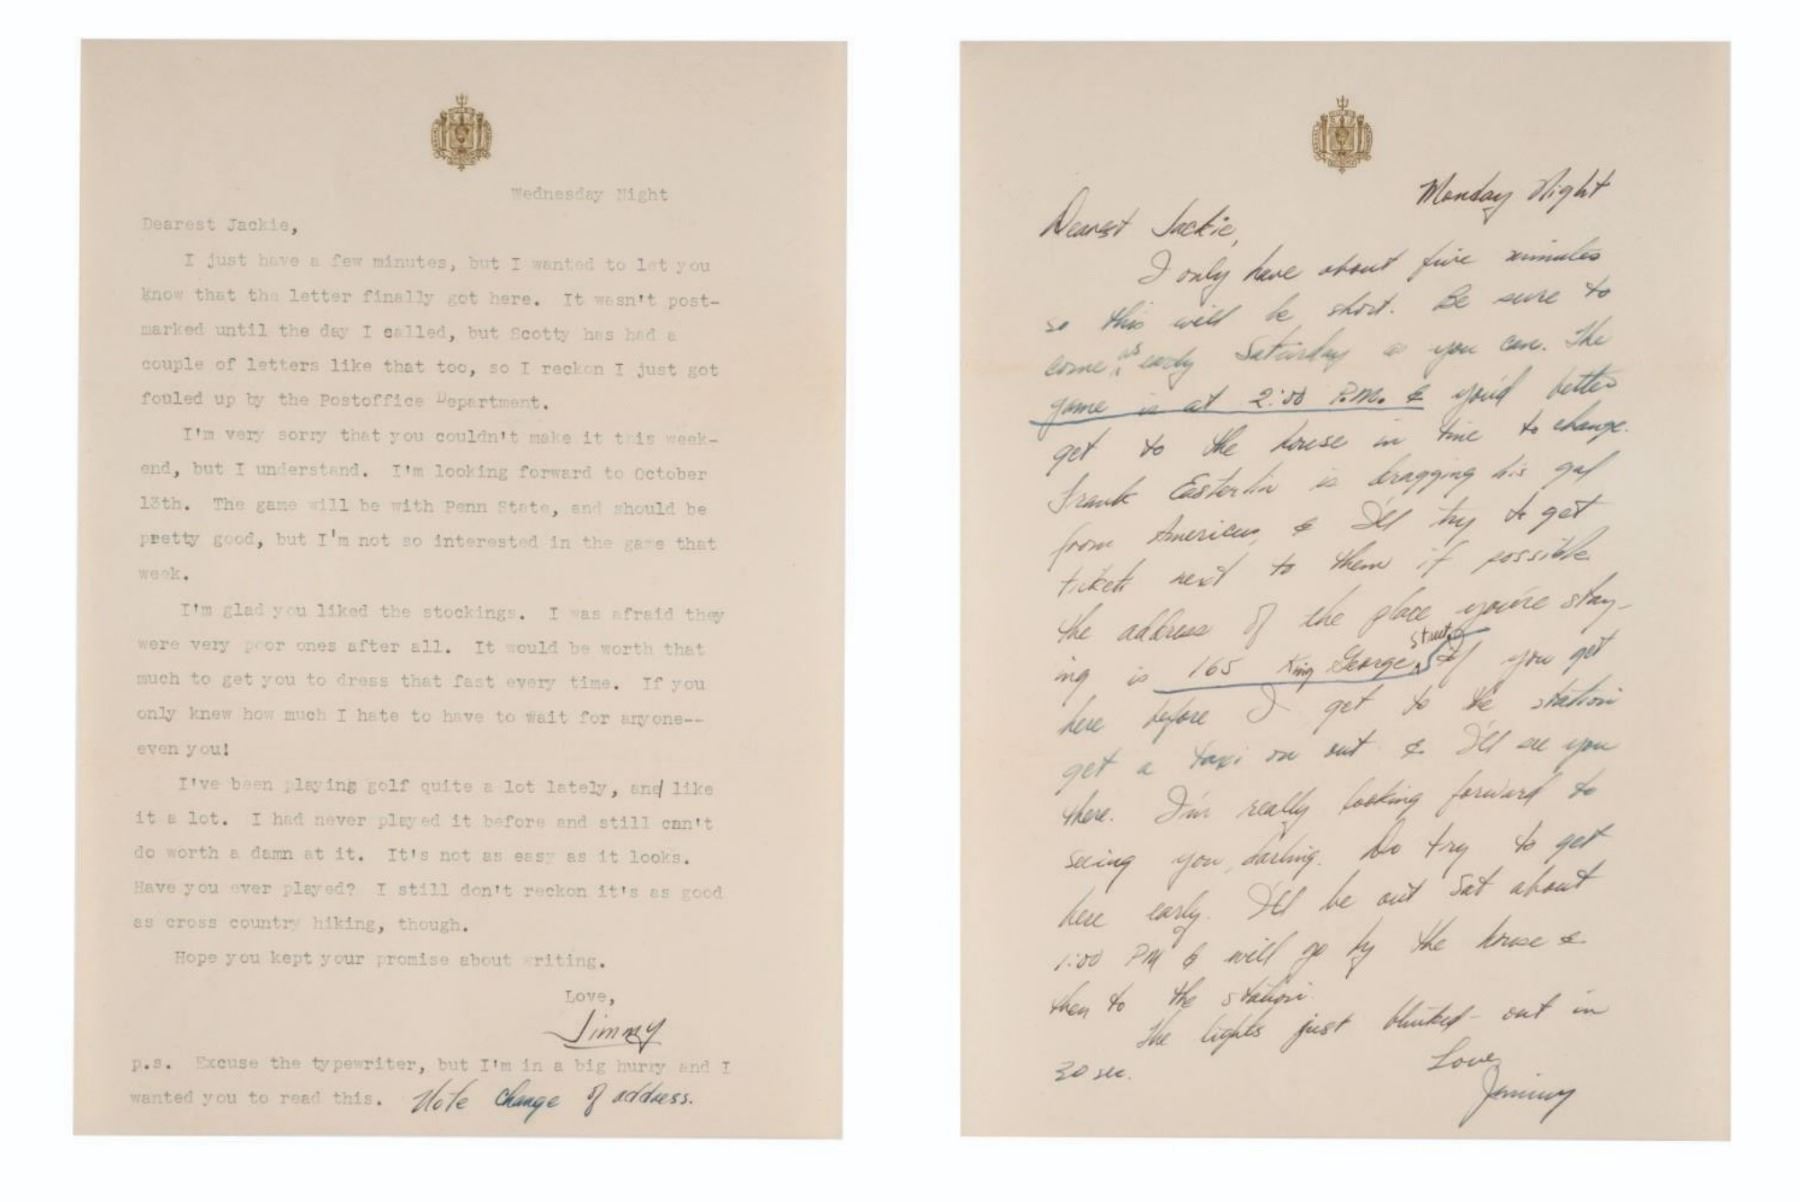 Wednesday Night
Dearest Jackie,
I just have a few minutes, but I wanted to let you
know that the letter finally got here. It wasn't post-
marked until the day I called, but Scotty has had a
couple of letters like that too, so I reckon I just got
fouled up by the Postoffice Department.
I'm very sorry that you couldn't make it this week-
end, but I understand. I'm looking forward to October
13th. The game will be with Penn State, and should be
pretty good, but I'm not so interested in the game that
week.
I'm glad you liked the stockings. I was afraid they
were very poor ones after all. It would be worth that
much to get you to dress that fast every time. If you
only knew how much I hate to have to wait for anyone--
even you!
I've been playing golf quite a lot lately, and like
it a lot. I had never played it before and still can't
do worth a damn at it. It's not as easy as it looks.
Have you ever played? I still don't reckon it's as good
as cross country hiking, though.
Hope you kept your promise about writing.
Love,
Jimmy
p.s. Excuse the typewriter, but I'm in a big hurry and I
wanted you to read this. Note change of address.
Monday Night
Dearest Jackie,
I only have about five minutes
so this will be short. Be sure to
come, as early Saturday as you can. The
game is at 2:00 P.M. & you'd better
get to the house in time to change.
Frank Easterlin is dragging his gal
from Americus, & I'll try to get
tickets next to them if possible.
The address of the place you're stay-
ing is 165 King George Street. If you get
here before I get to the station
get a taxi on out & I'll see you
there. I'm really looking forward to
seeing you, darling. Do try to get
here early. I'll be out Sat about
1:00 PM & will go by the house &
then to the station.
The lights just blinked - out in
30 sec.
Love,
Jimmy